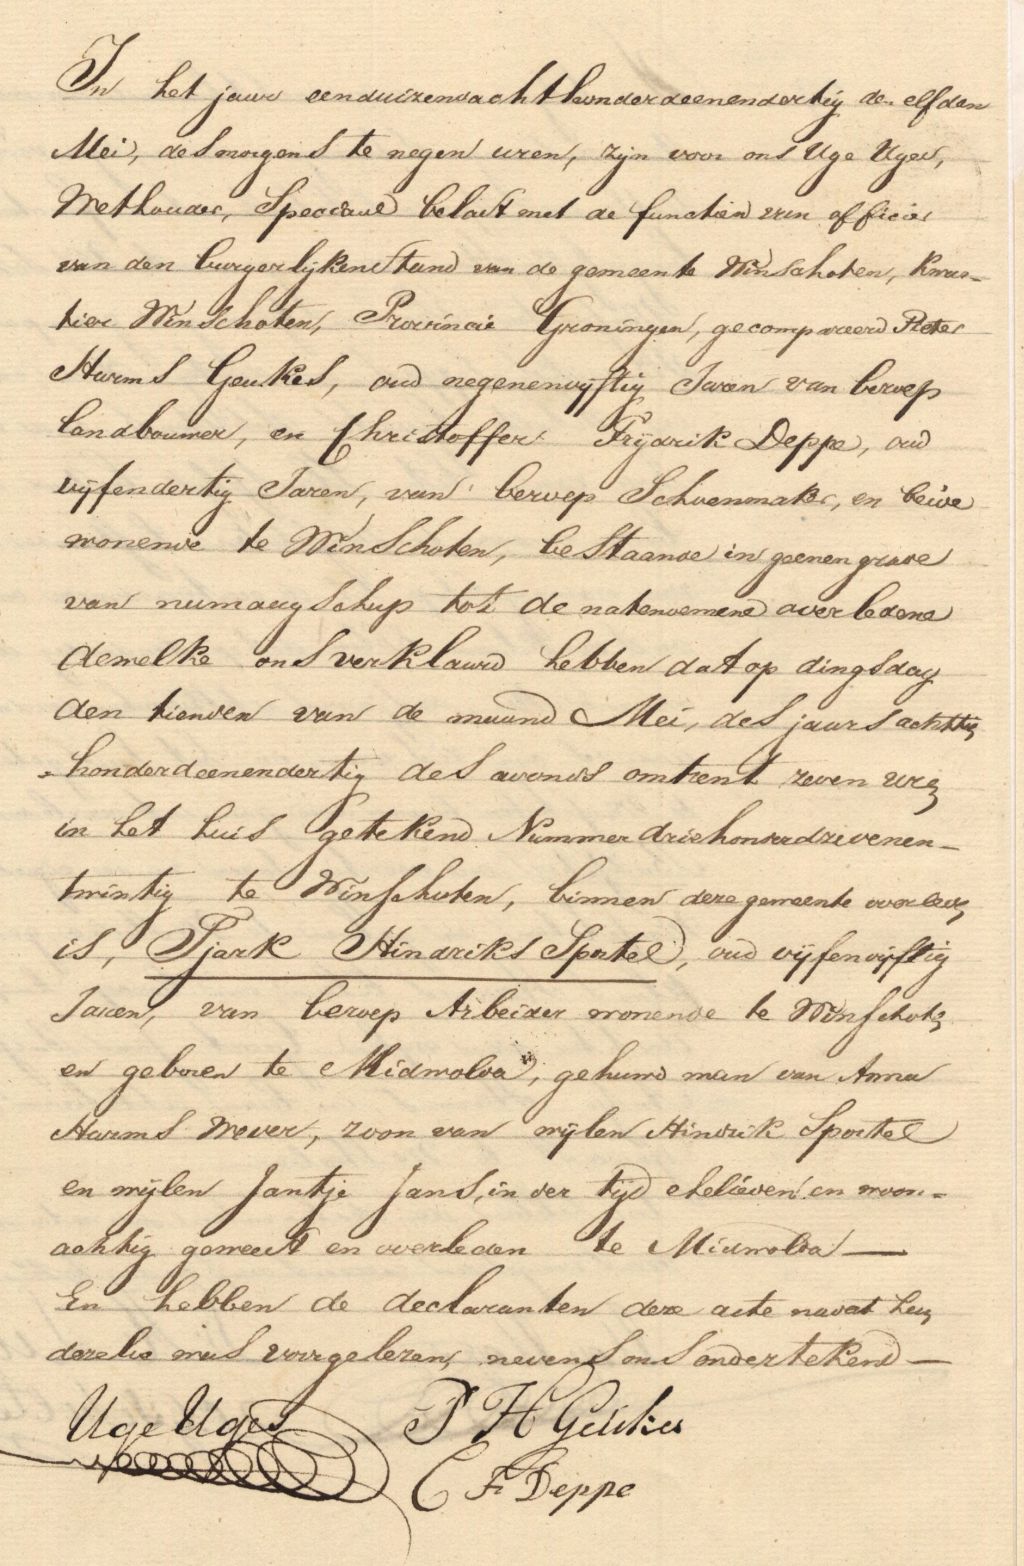 In het jaar eenduizendachthonderdeenendertig den elfden
Mei, des morgens te negen uren, zijn voor ons Uge Uges,
Wethouder, Speciaal belast met de functien van officier
van den burgerlijken Stand van de gemeente Winschoten, kwar-
tier Winschoten, Provincie Groningen, gecompareerd Pieter
Harms Geukes, oud negenenvijftig Jaren van beroep
landbouwer, en Christoffer Frijdrik Deppe, oud
vijfendertig Jaren, van beroep Schoenmaker, en beide
wonende te Winschoten, bestaande in geenen grade
van namaagschap tot de natenoemene overledene
dewelke ons verklaard hebben dat op dingsdag
den tienden van de maand Mei, des jaars achttien
honderdeenendertig des avonds omtrent zeven uren
in het huis getekend Nummer driehonderdzevenen-
twintig te Winschoten, binnen deze gemeente overleden
is, Tjark Hindriks Sportel, oud vijfenvijftig
Jaren, van beroep Arbeider wonende te Winschoten
en geboren te Midwolda, gehuwd man van Anna
Harms Wever, zoon van wijlen Hindrik Sportel
en wijlen Jantje Jans, in der tijd ehelieden en woon-
achtig geweest en overleden te Midwolda —
En hebben de declaranten deze acte nadat hen
dezelve was voorgelezen, nevens ons ondertekend —
Uge Uges P H Geukes
C F Deppe